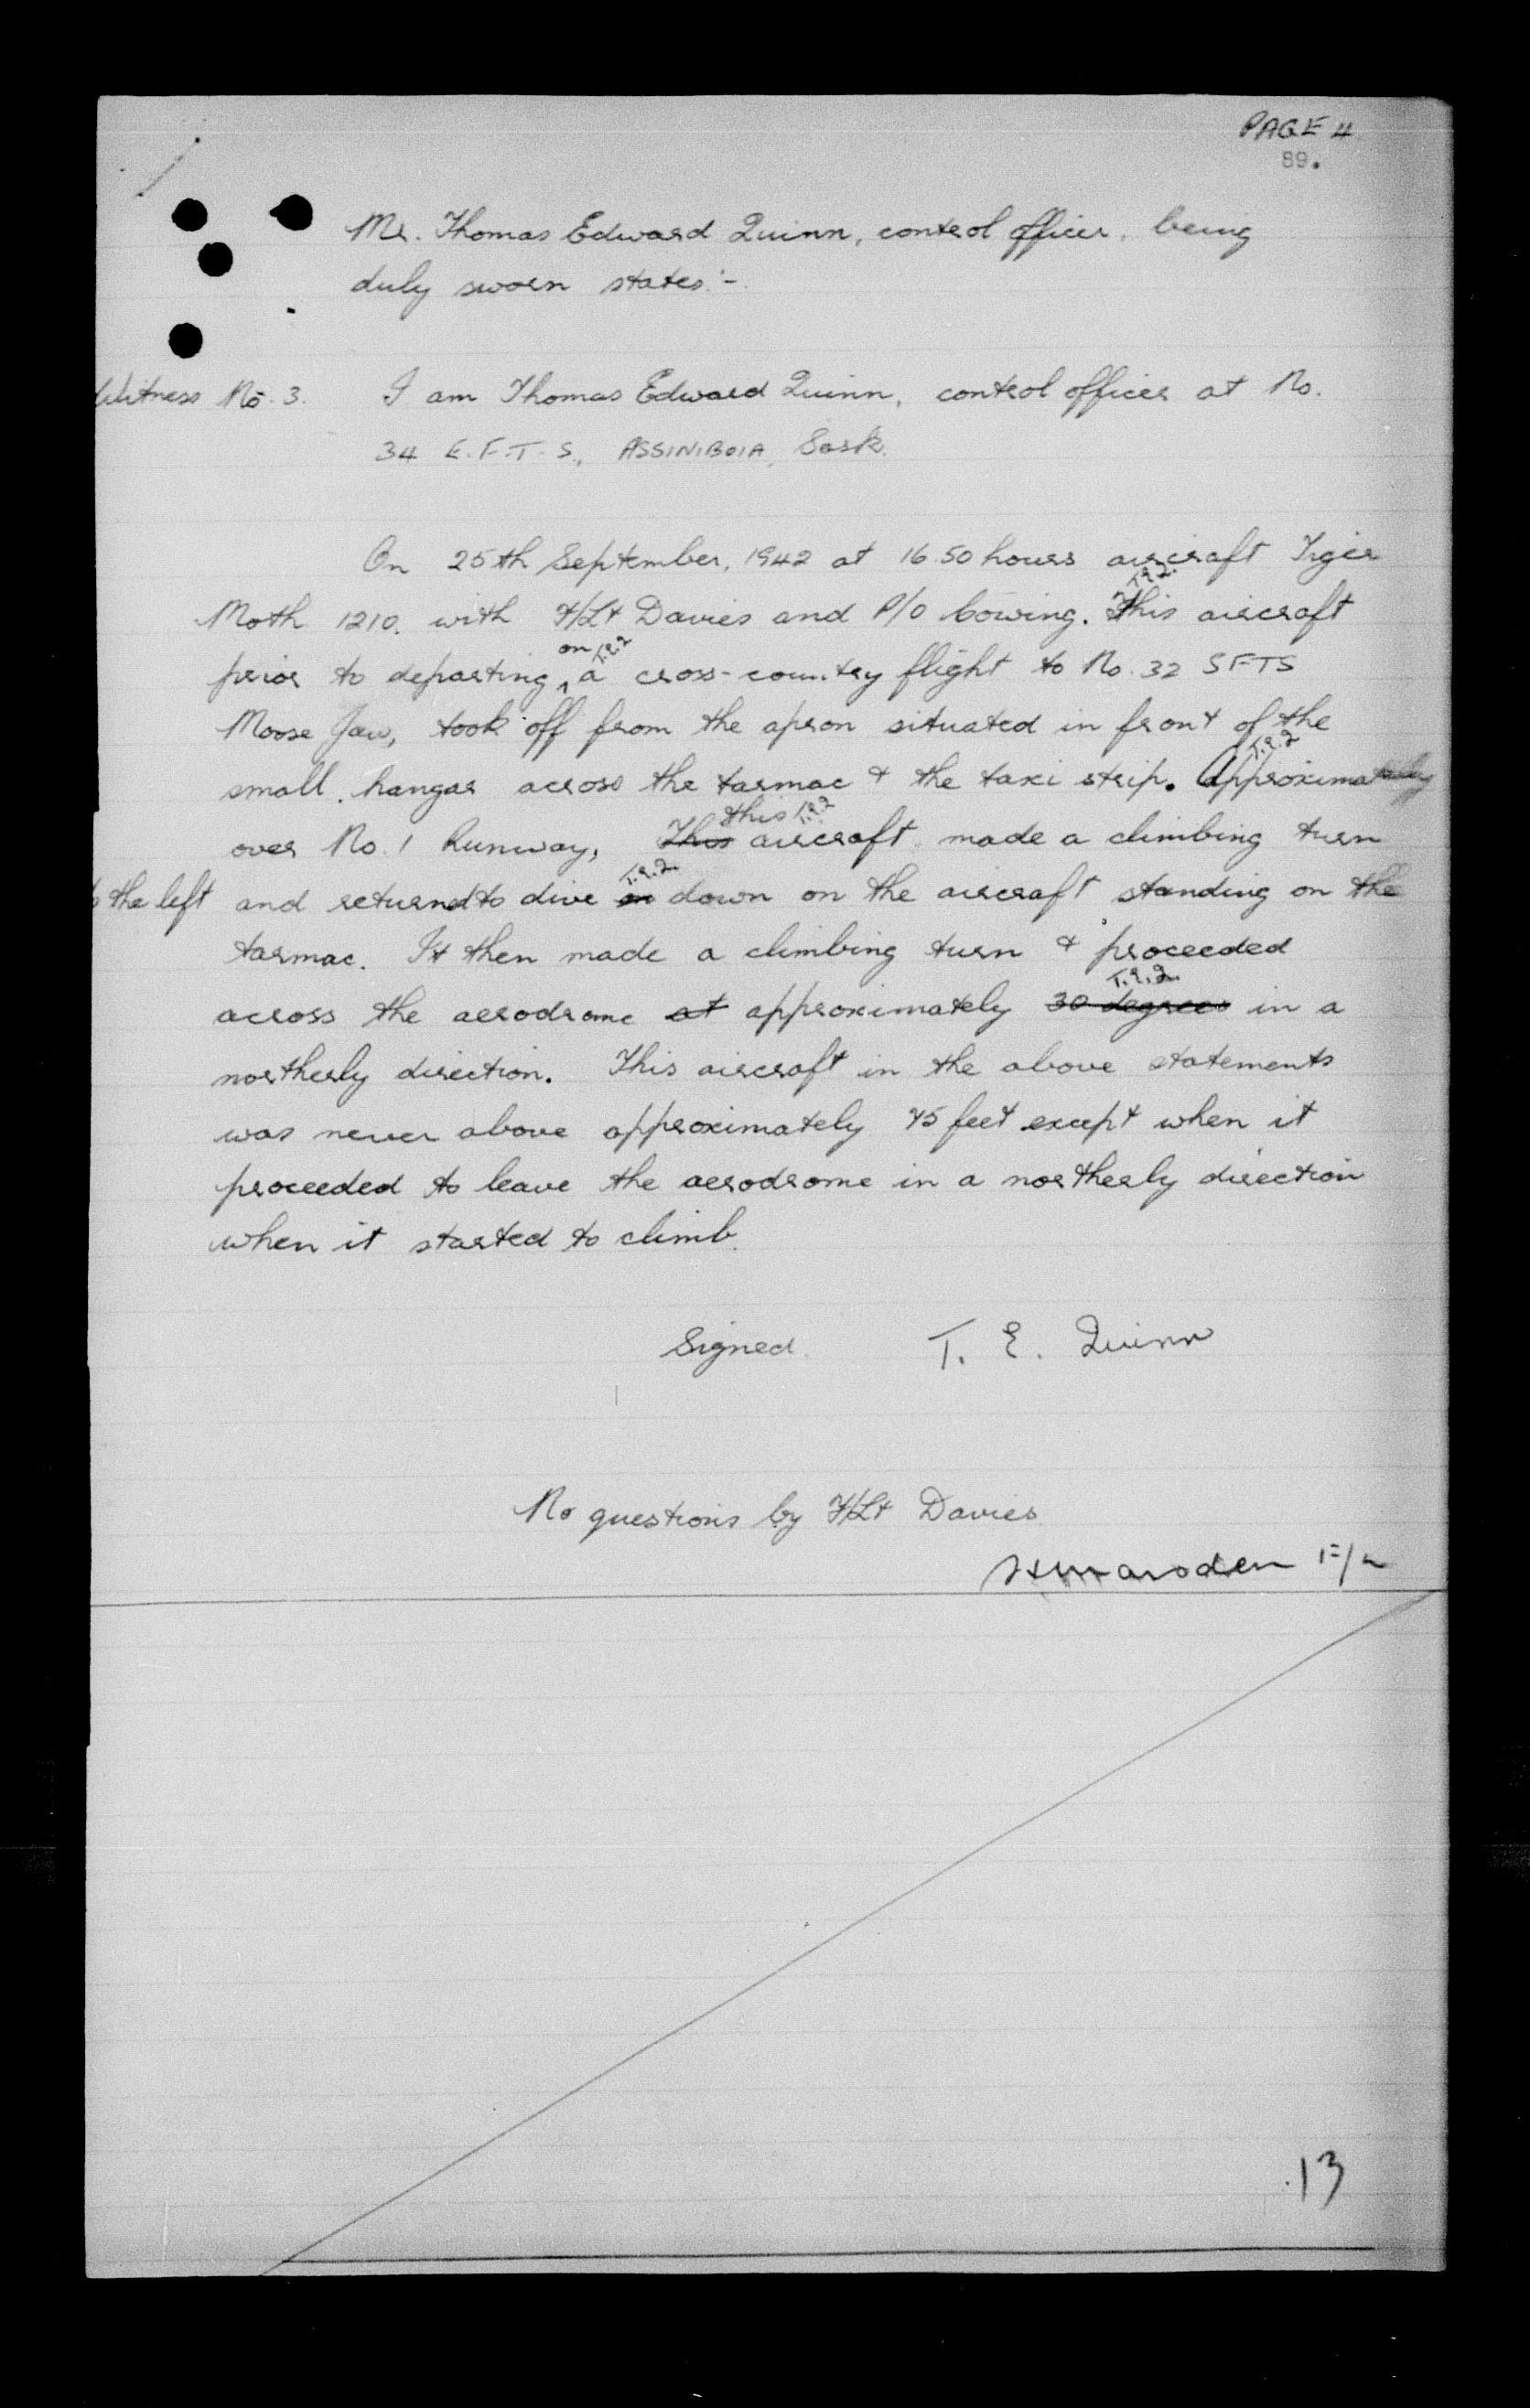 PAGE 4
89.
Mr. Thomas Edward Quinn, control officer, being
duly sworn states:-
Witness No. 3. I am Thomas Edward Quinn, control officer at No.
34 E.F.T.S., ASSINIBOIA, Sask.
On 25th September, 1942 at 16.50 hours aircraft Tiger
T.E.Q.
Moth 1210. with F/Lt Davies and P/O Cowing. This aircraft
on T.E.Q
prior to departing ^ a cross-country flight to No. 32 SFTS
Moose Jaw, took off from the apron situated in front of the
T.E.Q
small hangar across the tarmac & the taxi strip. Approximately
this T.E.Q
over No. 1 Runway, This aircraft made a climbing turn
T.E.Q.
to the left and returned to dive on down on the aircraft standing on the
tarmac. It then made a climbing turn & proceeded
T.E.Q.
across the aerodrome at approximately 30 degrees in a
northerly direction. This aircraft in the above statements
was never above approximately 75 feet except when it
proceeded to leave the aerodrome in a northerly direction
when it started to climb.
Signed. T. E. Quinn
No questions by F/Lt Davies
Marsden F/L
13